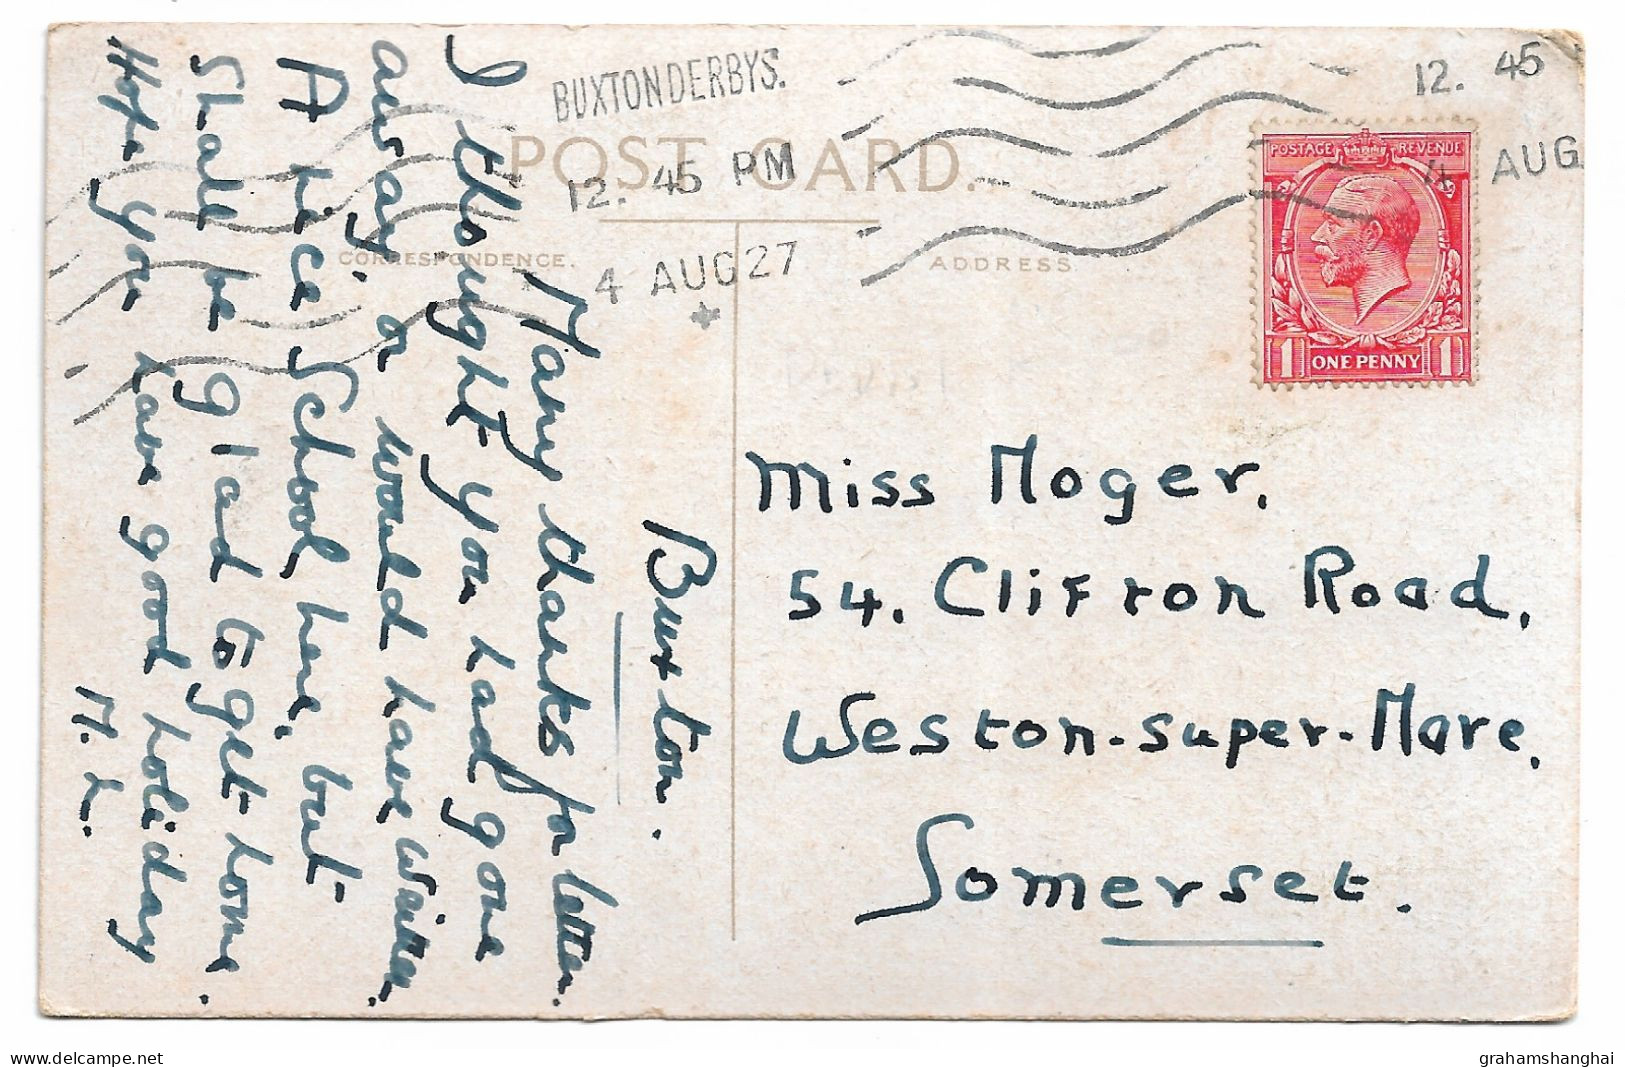 BUXTON DERBYS.
12. 45 PM
4 AUG 27
12. 45
4 AUG
POST CARD.
CORRESPONDENCE.
ADDRESS
POSTAGE REVENUE
1 ONE PENNY 1
Buxton.
Many thanks for letter.
I thought you had gone
away or would have written.
A nice School here, but
Shall be glad to get home.
Hope you have good holiday
M. L.
Miss Moger.
54. Clifton Road.
Weston-super-Mare.
Somerset.
delcampe.net
grahamshanghai